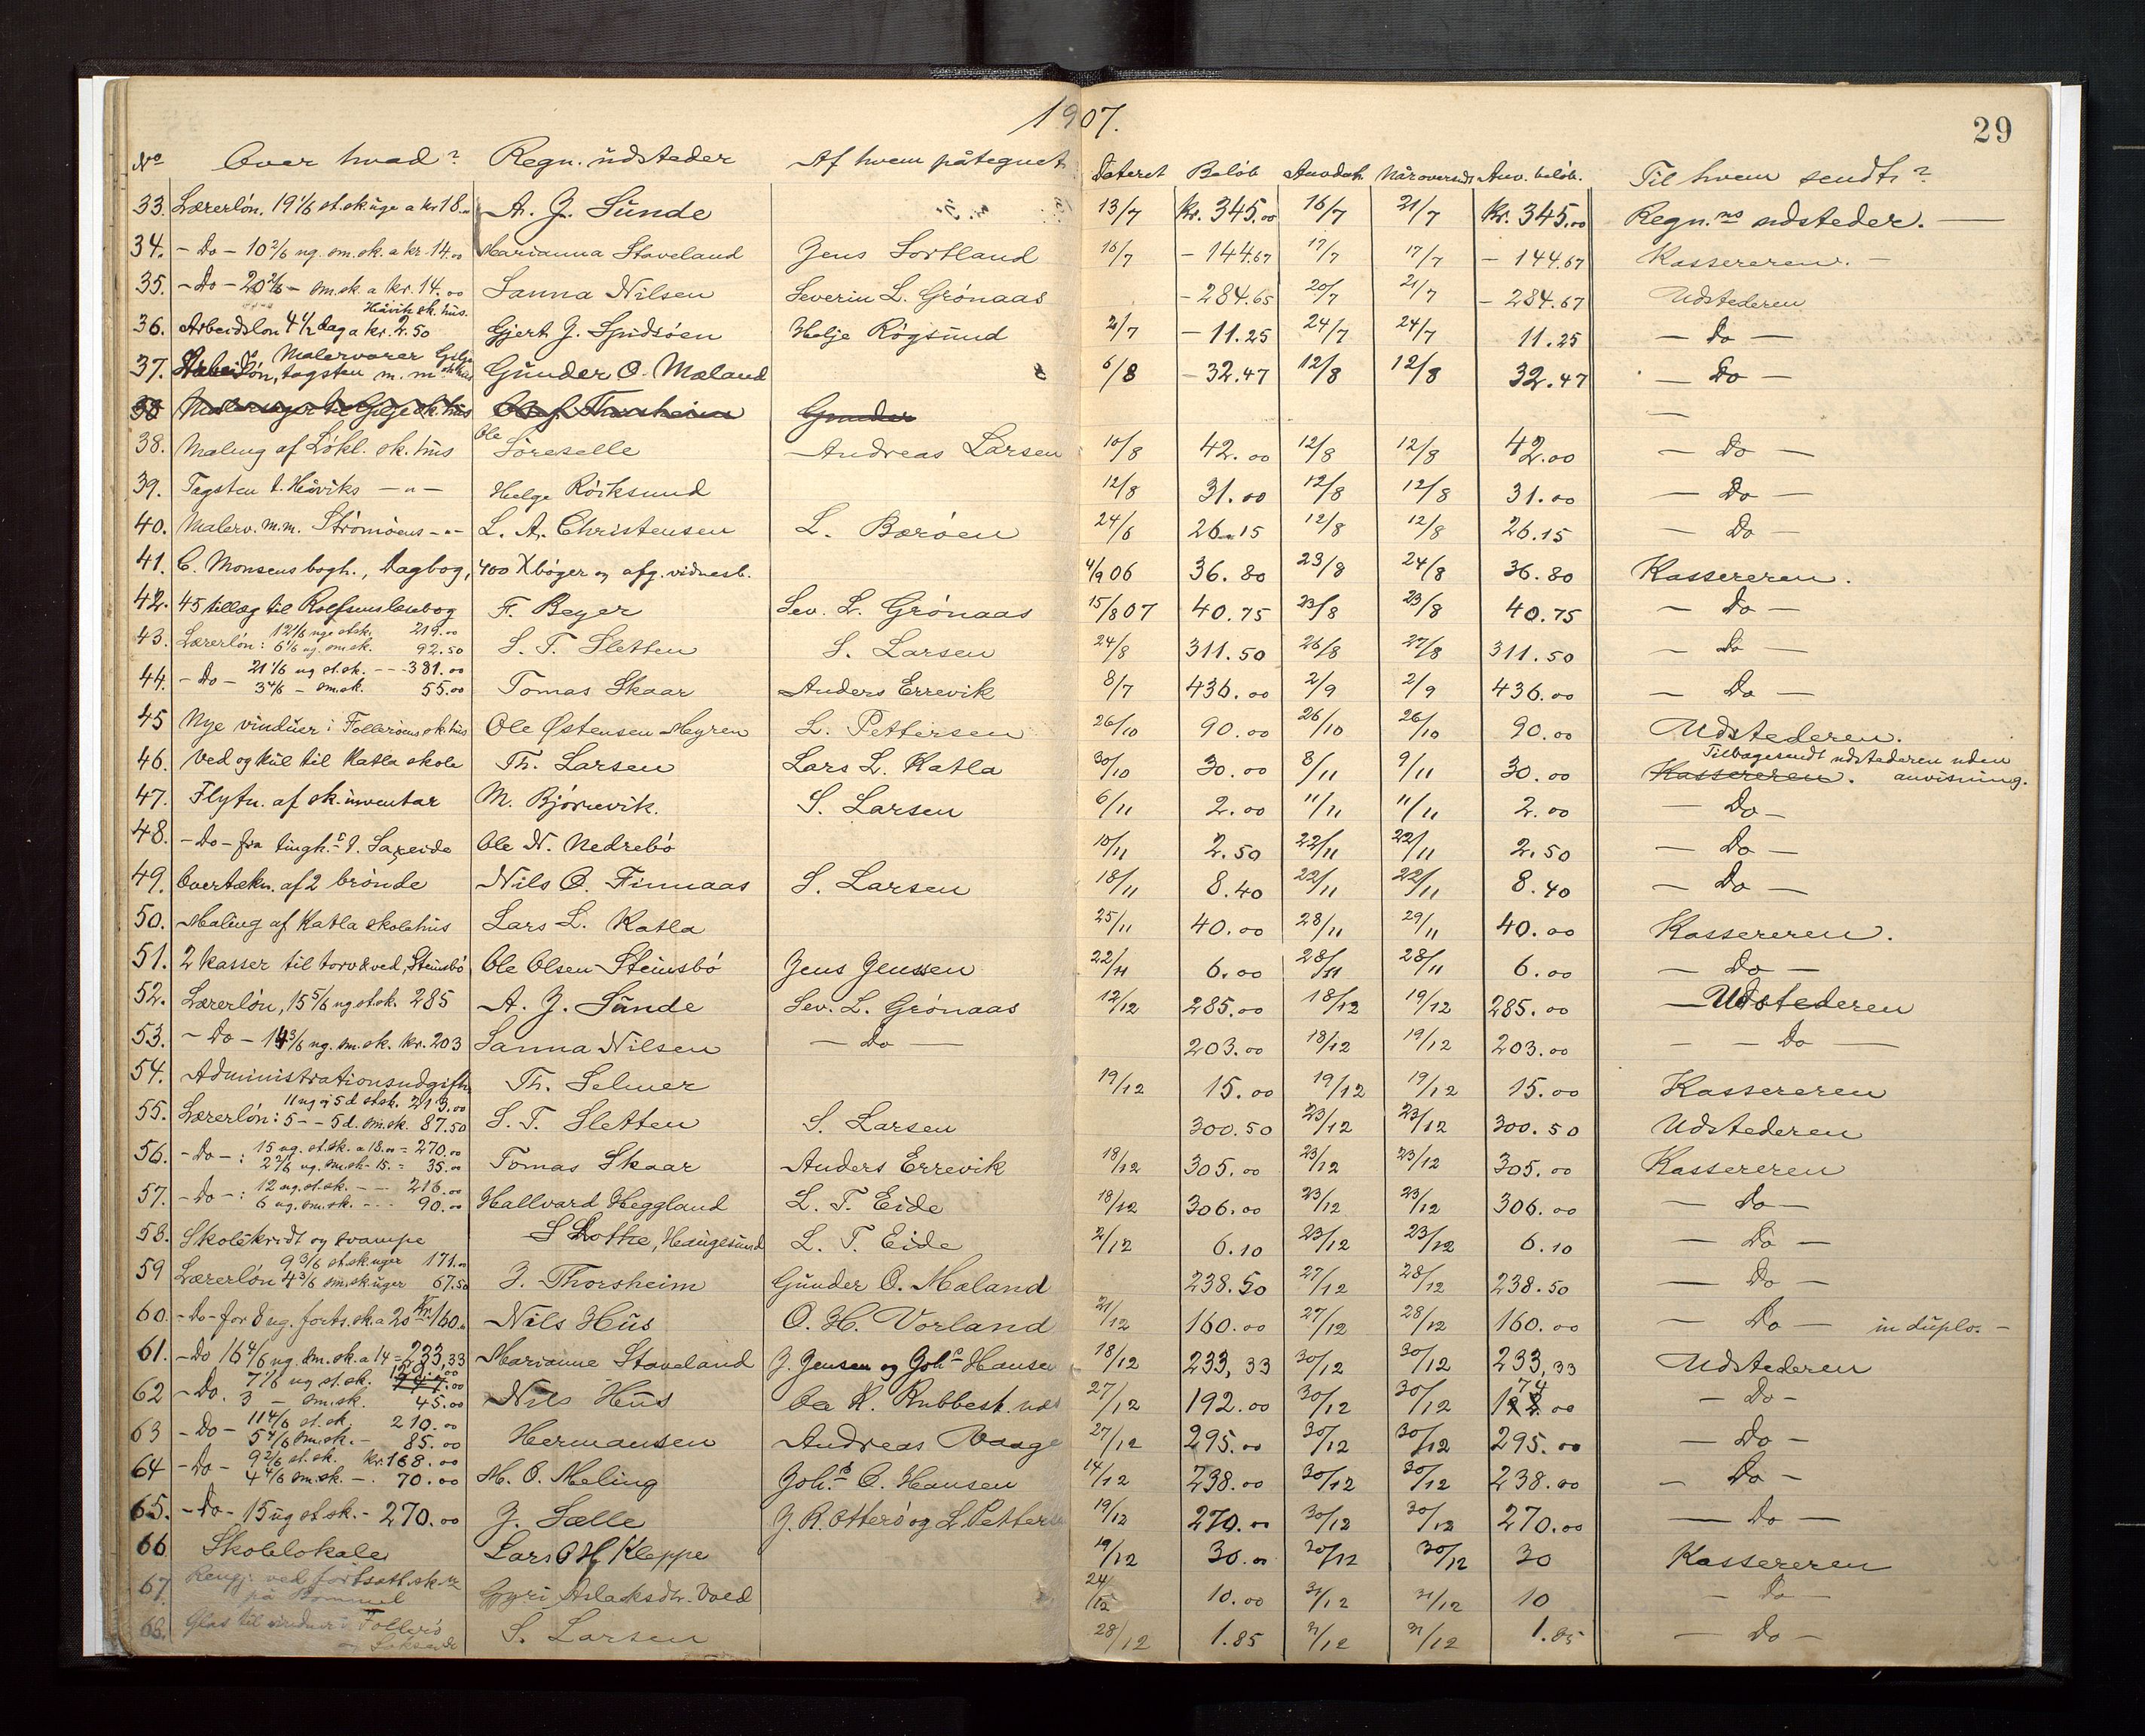 1907.
29
No Over hvad? Regn. udsteder Af hvem påtegnet Dateret Beløb Anvdat. Når oversendt Anv. beløb. Til hvem sendt?
33. Lærerløn, 19 1/6 st.sk.uge a kr. 18.00 A. J. Sunde 13/7 kr. 345.00 16/7 21/7 kr. 345.00 Regn.ns udsteder. —
34. - Do - 10 2/6 ug. sm.sk. a kr. 14.00 Marianna Staveland Jens Sortland 16/7 - 144.67 17/7 17/7 - 144.67 Kassereren. —
35. - Do - 20 2/6 - sm.sk. a kr. 14.00 Sanna Nilsen Severin L. Grønaas - 284.65 20/7 21/7 - 284.67 Udstederen
Håvik sk. hus.
36. Arbeidsløn 4 1/2 dag a kr. 2.50 Gjert J. Spidsøen Helje Røgsund 2/7 - 11.25 24/7 24/7 11.25 — Do —
Malervarer Gilje
37. tagsten m. m. Gunder O. Mæland 6/8 - 32.47 12/8 12/8 32.47 — Do —
38 Malersager til Gilje sk. hus Thorsheim Gunder —
38. Maling af Løkl. sk. hus Ole Søreselle Andreas Larsen 10/8 42.00 12/8 12/8 42.00 — Do —
39. Tagsten t. Håviks — " — Helge Röiksund 12/8 31.00 12/8 12/8 31.00 — Do —
40. Malerv. m.m. Strømøens - " - L. A. Christensen L. Barøen 24/6 26.15 12/8 12/8 26.15 — Do —
41. C. Monsens bogh., Dagbog, 400 X bøger og afg. vidnesb. 4/9 06 36.80 23/8 24/8 36.80 Kassereren.
42. 45 tillæg til Rolfsens læsebog F. Beyer Sev. L. Grønaas 15/8 07 40.75 23/8 23/8 40.75 — Do —
12 1/6 uge st.sk. 219.00
43. Lærerløn: 6 1/6 ug. sm.sk. 92.50 S. T. Sletten S. Larsen 24/8 311.50 26/8 27/8 311.50 — Do —
21 1/6 ug st.sk. - - - 381.00
44. - Do - 3 4/6 - sm.sk. 55.00 Tomas Skaar Anders Errevik 8/7 436.00 2/9 2/9 436.00 — Do —
45 Nye vinduer i Follerøens sk.hus Ole Østensen Myren L. Pettersen 26/10 90.00 26/10 26/10 90.00 Udstederen.
Tilbagesendt udstederen uden
46. Ved og kul til Katla skole Th. Larsen Lars L. Katla 30/10 30.00 8/11 9/11 30.00 Kassereren. anvisning.
47. Flytn. af sk. inventar M. Bjørnevik. S. Larsen 6/11 2.00 11/11 11/11 2.00 — Do —
48. - Do - fra tingh. t. Saxeide Ole N. Nedrebø 10/11 2.50 22/11 22/11 2.50 — Do —
49. Overtækn. af 2 brønde Nils O. Finnaas S. Larsen 18/11 8.40 22/11 22/11 8.40 — Do —
50. Maling af Katla skolehus Lars L. Katla 25/11 40.00 28/11 29/11 40.00 Kassereren.
51. 2 kasser til torv & ved, Steinsbø Ole Olsen Steinsbø Jens Jenssen 22/11 6.00 28/11 28/11 6.00 — Do —
52. Lærerløn, 15 5/6 ug st.sk. 285 A. J. Sunde Sev. L. Grønaas 12/12 285.00 18/12 19/12 285.00 — Udstederen
53. - Do - 14 3/6 ug. sm.sk. kr. 203 Sanna Nilsen — Do — 203.00 18/12 19/12 203.00 — — Do —
54. Administrationsudgifter Th. Selmer 19/12 15.00 19/12 19/12 15.00 Kassereren
11 ug og 5 d st.sk. 213.00
55. Lærerløn: 5 - - 5 d. sm.sk. 87.50 S. T. Sletten S. Larsen 300.50 23/12 23/12 300.50 Udstederen
15 ug. st.sk. a 18.00 = 270.00
56. - Do - : 2 2/6 ug. sm.sk - 15. = 35.00 Tomas Skaar Anders Errevik 18/12 305.00 23/12 23/12 305.00 Kassereren
12 ug. st.sk. - - 216.00
57. - Do - : 6 ug. sm.sk. - - - 90.00 Hallvard Heggland L. T. Eide 18/12 306.00 23/12 23/12 306.00 — Do —
58. Skolekridt og svampe S Lothe, Haugesund L. T. Eide 2/12 6.10 23/12 23/12 6.10 — Do —
9 3/6 st.sk.uger 171.00
59 Lærerløn 4 3/6 sm.sk.uger 67.50 J. Thorsheim Gunder O. Mæland 238.50 27/12 28/12 238.50 — Do —
60. - Do - for 8 ug. forts.sk. a 20 Kr. 160.00 Nils Hus O. H. Vorland 21/12 160.00 27/12 28/12 160.00 — Do — in duplo. —
61. - Do 16 4/6 ug. sm.sk. a 14 = 233,33 Marianne Staveland J. Jensen og Joh.s Hansen 18/12 233,33 30/12 30/12 233,33 Udstederen
7 1/6 ug st.sk. 147.00
62 - Do. 3 - sm.sk. 45.00 Nils Hus Oa K. Rubbest. 27/12 192.00 30/12 30/12 174.00 — Do —
11 4/6 st.sk. 210.00
63 - Do - 5 4/6 sm.sk. - 85.00 Hermansen Andreas Waage 27/12 295.00 30/12 30/12 295.00 — Do —
9 2/6 st.sk. kr. 168.00
64 - Do - 4 4/6 sm.sk. - 70.00 M. O. Meling Joh.s O. Hansen 14/12 238.00 30/12 30/12 238.00 — Do —
65. - Do - 15 ug st.sk. - 270.00 J. Sælle J. R. Otterø og L. Pettersen 19/12 270.00 30/12 30/12 270.00 — Do —
66 Skolelokale Lars O H Kleppe 19/12 30.00 30/12 30/12 30 Kassereren
67. Rengj. ved fortsætt.sk.n Gyri Aslaksdtr. Vold 24/12 10.00 31/12 31/12 10 — Do —
på Bømmel
68. Glas til vinduer i Follerø S. Larsen 28/12 1.85 31/12 31/12 1.85 — Do —
og Sakseide